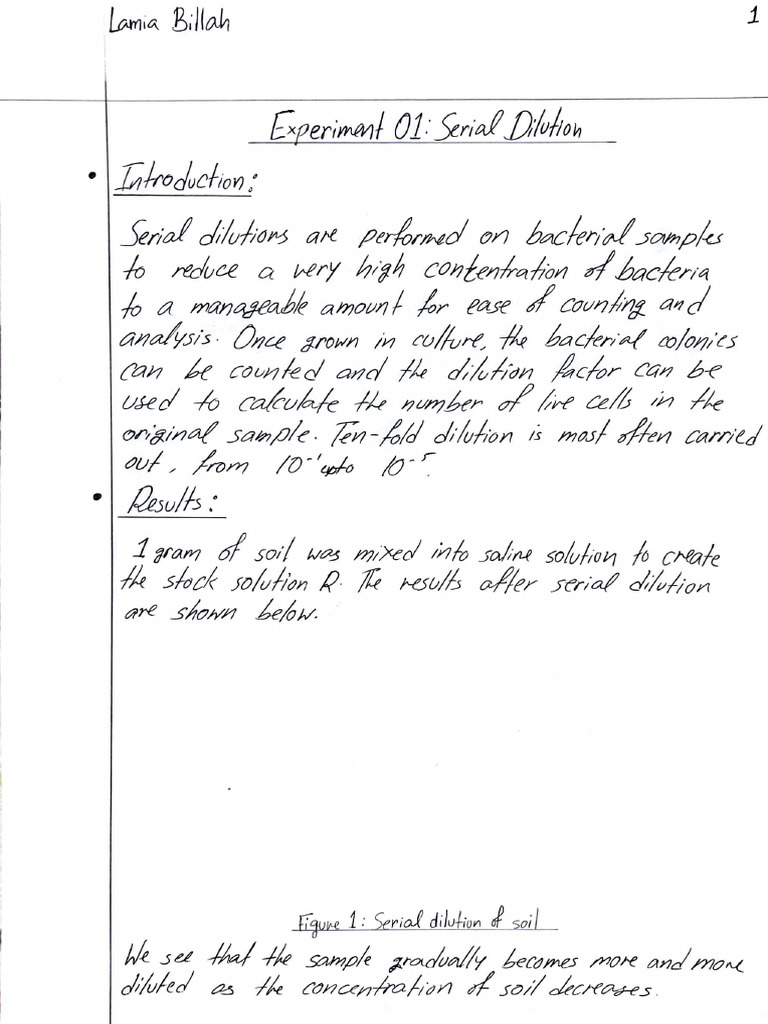 Lamia Billah
1
Experiment 01: Serial Dilution
• Introduction:
Serial dilutions are performed on bacterial samples
to reduce a very high concentration of bacteria
to a manageable amount for ease of counting and
analysis. Once grown in culture, the bacterial colonies
can be counted and the dilution factor can be
used to calculate the number of live cells in the
original sample. Ten-fold dilution is most often carried
out, from 10⁻¹ upto 10⁻⁵.
• Results:
1 gram of soil was mixed into saline solution to create
the stock solution R. The results after serial dilution
are shown below.
Figure 1: Serial dilution of soil
We see that the sample gradually becomes more and more
diluted as the concentration of soil decreases.